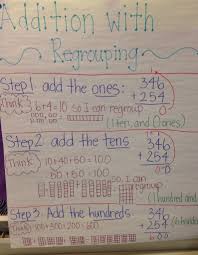 Addition with
Regrouping
Step 1 add the ones: 346
Think 6+4=10 so I can regroup + 254
0
(1 ten, and 0 ones)
Step 2 add the tens 346
Think 10+40+50=100 + 254
50+50=100 00
so, I can regroup
(1 hundred and
Step 3 Add the hundreds 346
Think 100+300+200=600 + 254
600